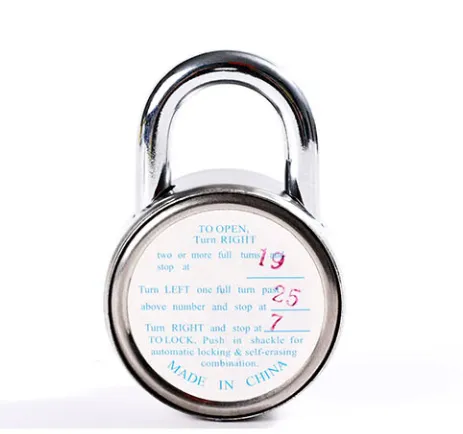 TO OPEN,
Turn RIGHT
two or more full turns and
stop at 19
Turn LEFT one full turn past
above number and stop at 25
Turn RIGHT and stop at 7
TO LOCK, Push in shackle for
automatic locking & self-erasing
combination.
MADE IN CHINA